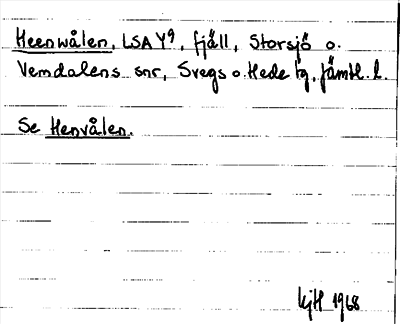 Heenwålen, LSA Y⁹, fjäll, Storsjö o.
Vemdalens snr, Svegs o. Hede tg, Jämtl. l.
Se Henvålen.
kjH 1968